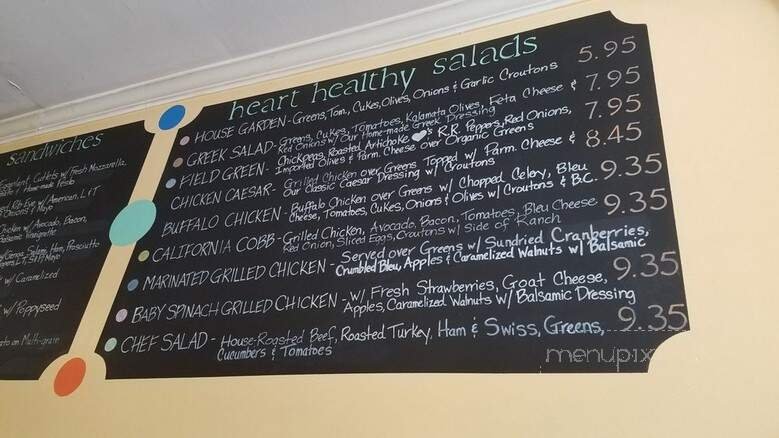 sandwiches
w/ Fresh Mozzarella,
Home-made Pesto
Rib Eye w/ American, L & T
Onions & Mayo
Chicken w/ Avocado, Bacon,
Balsamic Vinaigrette
Genoa Salami, Ham, Prosciutto
w/ Caramelized
w/ Poppyseed
on Multi-grain
heart healthy salads
HOUSE GARDEN - Greens, Tom., Cukes, Olives, Onions & Garlic Croutons 5.95
GREEK SALAD - Greens, Cukes, Tomatoes, Kalamata Olives, Feta Cheese & 7.95
Red Onions w/ Our Home-made Greek Dressing
FIELD GREEN - Chickpeas, Roasted Artichoke ❤'s, R.R. Peppers, Red Onions, 7.95
Imported Olives & Parm. Cheese over Organic Greens
CHICKEN CAESAR - Grilled Chicken over Greens Topped w/ Parm. Cheese & 8.45
Our Classic Caesar Dressing w/ Croutons
BUFFALO CHICKEN - Buffalo Chicken over Greens w/ Chopped Celery, Bleu 9.35
Cheese, Tomatoes, Cukes, Onions & Olives w/ Croutons & B.C.
CALIFORNIA COBB - Grilled Chicken, Avocado, Bacon, Tomatoes, Bleu Cheese 9.35
Red Onion, Sliced Eggs, Croutons w/ Side of Ranch
MARINATED GRILLED CHICKEN - Served over Greens w/ Sundried Cranberries,
Crumbled Bleu, Apples & Caramelized Walnuts w/ Balsamic 9.35
BABY SPINACH GRILLED CHICKEN - w/ Fresh Strawberries, Goat Cheese,
Apples, Caramelized Walnuts w/ Balsamic Dressing 9.35
CHEF SALAD - House-Roasted Beef, Roasted Turkey, Ham & Swiss, Greens,
Cucumbers & Tomatoes
menupix